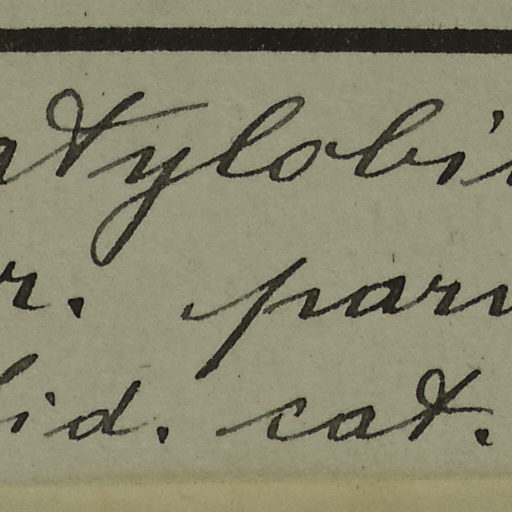 atylobi
r. parv
id. cat.